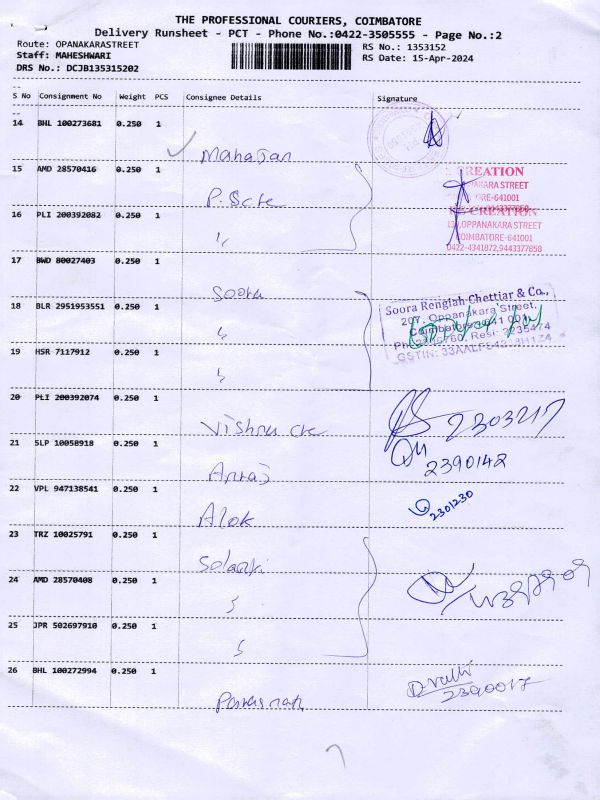 THE PROFESSIONAL COURIERS, COIMBATORE
Delivery Runsheet - PCT - Phone No.:0422-3505555 - Page No.:2
Route: OPANAKARASTREET
RS No.: 1353152
Staff: MAHESHWARI
RS Date: 15-Apr-2024
DRS No.: DCJB135315202
S No Consignment No Weight PCS Consignee Details Signature
14 BHL 100273681 0.250 1
Mahajan
15 AMD 28570416 0.250 1
P. Scte
CREATION
OPPANAKARA STREET
COIMBATORE-641001
16 PLI 200392082 0.250 1
"
CREATION
OPPANAKARA STREET
COIMBATORE-641001
0422-4341872,9443377858
17 BWD 80027403 0.250 1
Soora
Soora Rengiah Chettiar & Co.,
207, Oppanakara Street,
Coimbatore-641 001
18 BLR 2951953551 0.250 1
"
19 HSR 7117912 0.250 1
"
20 PLI 200392074 0.250 1
Vishnu cte
2303217
21 SLP 10058918 0.250 1
2390142
22 VPL 947138541 0.250 1
Alok
2301230
23 TRZ 10025791 0.250 1
Solanki
24 AMD 28570408 0.250 1
"
25 JPR 502697910 0.250 1
"
26 BHL 100272994 0.250 1
Parasnath
D. Valli
2390017